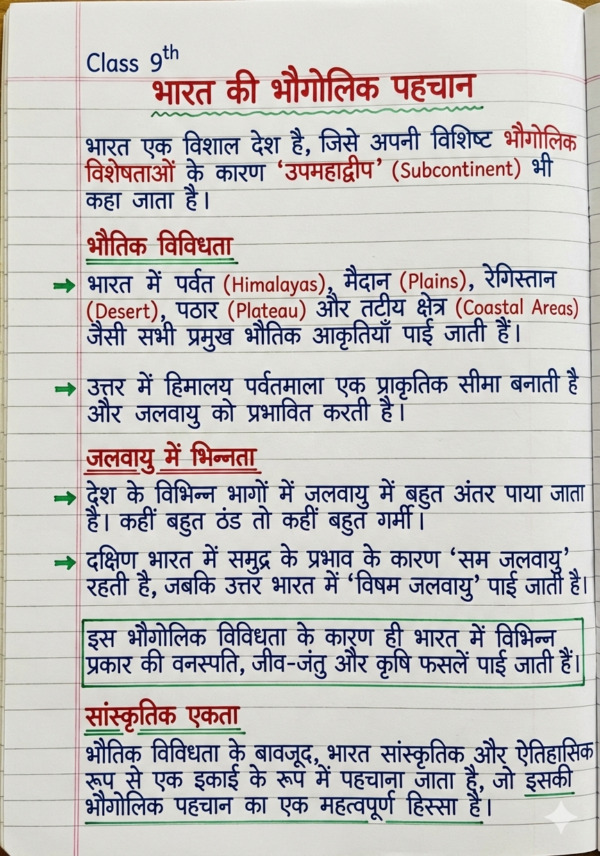 Class 9th
भारत की भौगोलिक पहचान
भारत एक विशाल देश है, जिसे अपनी विशिष्ट भौगोलिक
विशेषताओं के कारण ‘उपमहाद्वीप’ (Subcontinent) भी
कहा जाता है।
भौतिक विविधता
→ भारत में पर्वत (Himalayas), मैदान (Plains), रेगिस्तान
(Desert), पठार (Plateau) और तटीय क्षेत्र (Coastal Areas)
जैसी सभी प्रमुख भौतिक आकृतियाँ पाई जाती हैं।
→ उत्तर में हिमालय पर्वतमाला एक प्राकृतिक सीमा बनाती है
और जलवायु को प्रभावित करती है।
जलवायु में भिन्नता
→ देश के विभिन्न भागों में जलवायु में बहुत अंतर पाया जाता
है। कहीं बहुत ठंड तो कहीं बहुत गर्मी।
→ दक्षिण भारत में समुद्र के प्रभाव के कारण ‘सम जलवायु’
रहती है, जबकि उत्तर भारत में ‘विषम जलवायु’ पाई जाती है।
इस भौगोलिक विविधता के कारण ही भारत में विभिन्न
प्रकार की वनस्पति, जीव-जंतु और कृषि फसलें पाई जाती हैं।
सांस्कृतिक एकता
भौतिक विविधता के बावजूद, भारत सांस्कृतिक और ऐतिहासिक
रूप से एक इकाई के रूप में पहचाना जाता है, जो इसकी
भौगोलिक पहचान का एक महत्वपूर्ण हिस्सा है।